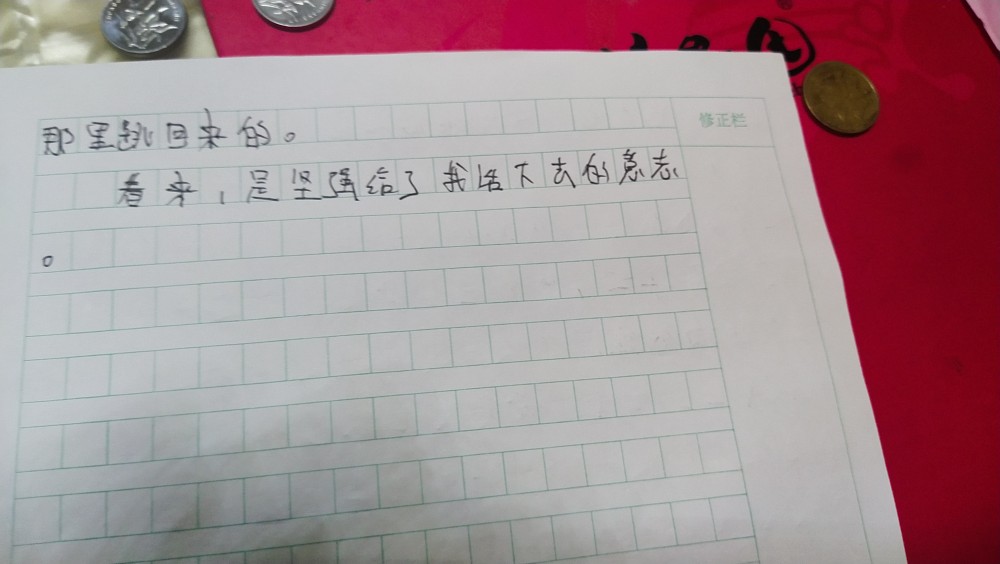 那里跳回来的。
看来，是坚强给了我活下去的意志
。
修正栏